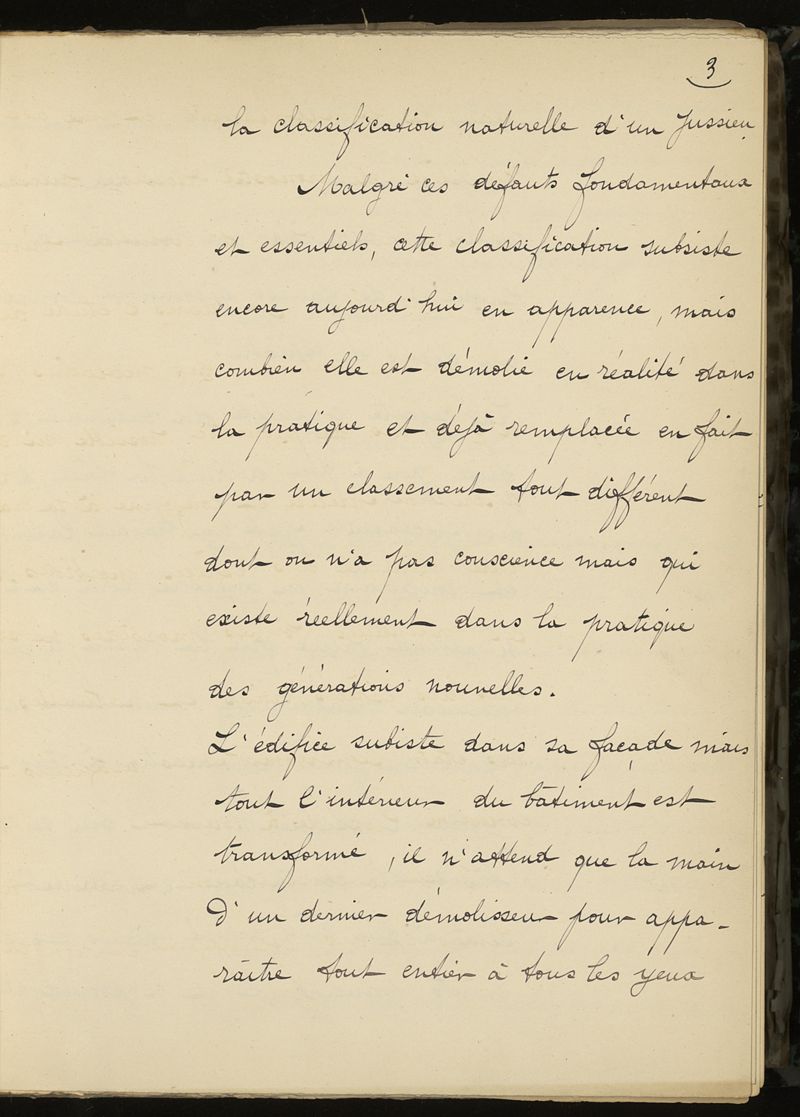 3
la classification naturelle d'un Jussieu.
Malgré ces défauts fondamentaux
et essentiels, cette classification subsiste
encore aujourd'hui en apparence, mais
combien elle est démolie en réalité dans
la pratique et déjà remplacée en fait
par un classement tout différent
dont on n'a pas conscience mais qui
existe réellement dans la pratique
des générations nouvelles.
L'édifice subiste dans sa façade mais
tout l'intérieur du bâtiment est
transformé, il n'attend que la main
d'un dernier démolisseur pour appa-
raître tout entier à tous les yeux